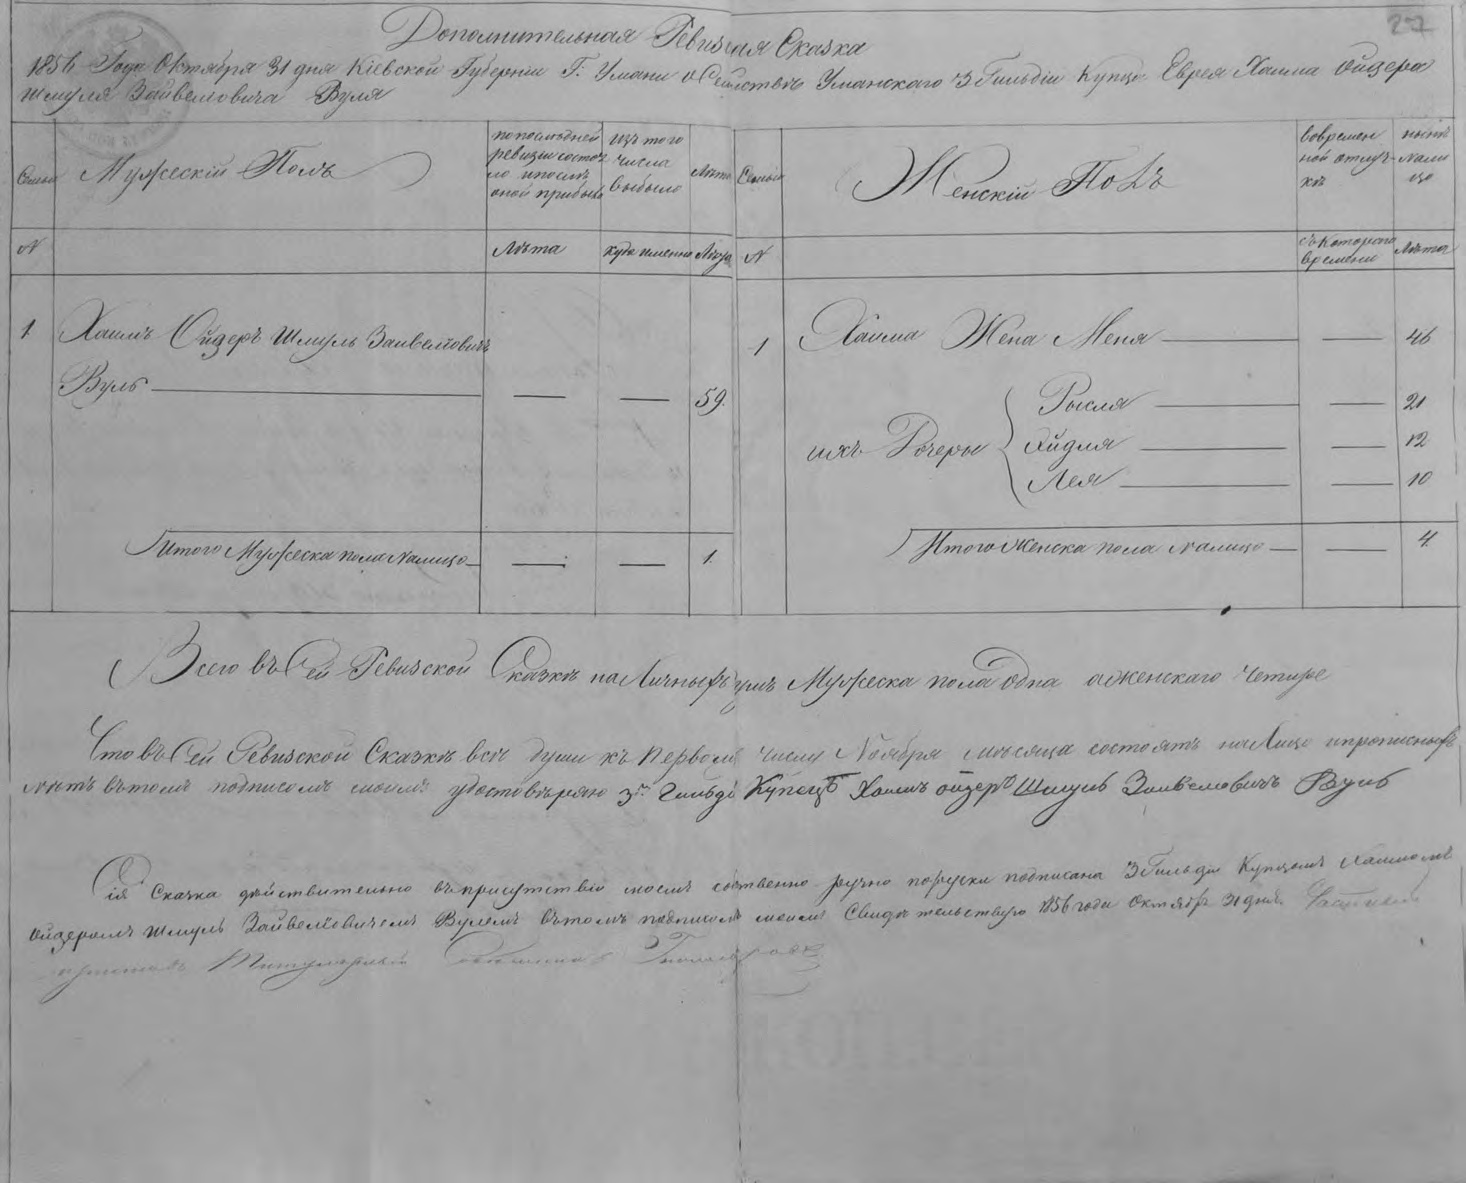 27
Дополнительная Ревизкая Сказка
1856 Года Октября 31 дня Кіевской Губерніи Г. Умани о Семѣйствѣ Уманскаго 3 Гильдіи Купца Еврея Хаима Ойзера
Шмуля Зайвелювича Вуля
Семьи
Мужескій Полъ
по последней ревизіи состояло и после оной прибыло
изъ того числа выбыло
Лѣта
Семьи
Женскій Полъ
во времен
ной отлуч-
кѣ
нынѣ
нали
цо
№
Лѣта
куда именно
Лѣта
№
съ котораго
времени
Лѣта
1. Хаимъ Ойзеръ Шмуль Заивелювичъ
Вуль — — — 59.
1 Хаима Жена Меня — — 46
ихъ Дочеры
Рысля — — 21
Айдля — — 12
Лея — — 10
Итого Мужеска пола налицо — — — 1.
Итого женска пола налицо — — 4.
Всего въ Сей Ревизской Сказкѣ наличныхъ душъ Мужеска пола одна а женскаго четире
Что въ Сей Ревизской Сказкѣ всѣ души къ первому числу Ноября мѣсяца состоятъ на Лицо и прописныхъ
нѣтъ въ томъ подписомъ моимъ удостовѣряю 3й Гильдіи Купецъ Хаимъ Ойзеръ Шмуль Заивелювичъ Вуль
Сія Сказка дѣйствительно въ присутствіи моемъ собственно ручно по руски подписана 3 Гильдіи Купцомъ Хаимомъ
Ойзеромъ Шмуль Зайвелювичемъ Вулемъ въ томъ подписомъ моимъ Свидѣтельствую 1856 года Октября 31 дня. Частный
приставъ Титулярный Совѣтникъ